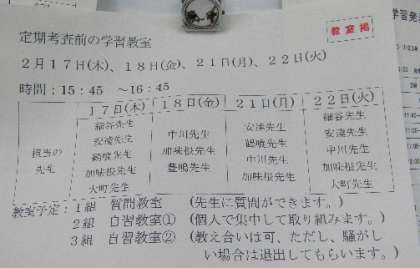 定期考査前の学習教室
教室掲
2月17日(木)、18日(金)、21日(月)、22日(火)
時間：15：45 ～16：45
17日(木) 18日(金) 21日(月) 22日(火)
担当の先生
細谷先生
安達先生
鶴喰先生
加味根先生
大町先生
中川先生
加味根先生
豊嶋先生
安達先生
鶴喰先生
中川先生
加味根先生
細谷先生
安達先生
中川先生
加味根先生
大町先生
教室予定：1組 質問教室 (先生に質問ができます。)
2組 自習教室① (個人で集中して取り組みます。)
3組 自習教室② (教え合いは可、ただし、騒がし
い場合は退出してもらいます。)